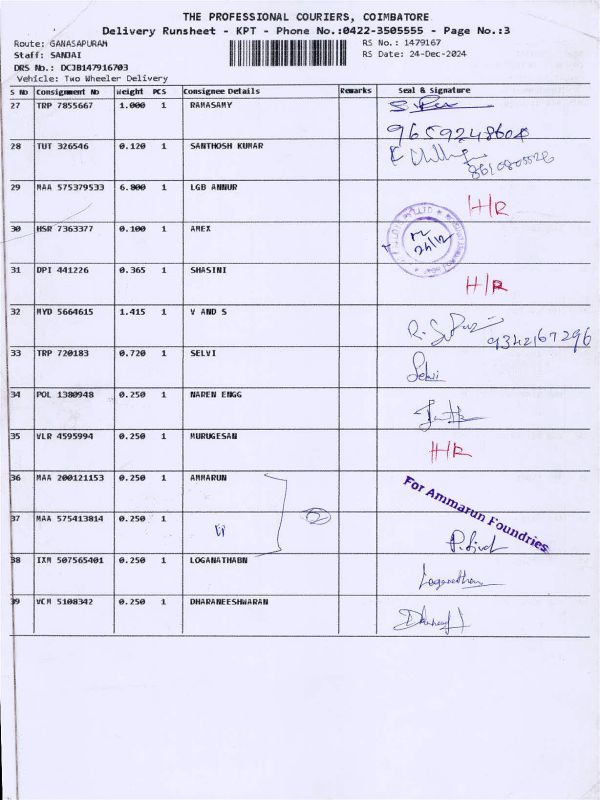 THE PROFESSIONAL COURIERS, COIMBATORE
Delivery Runsheet - KPT - Phone No.:0422-3505555 - Page No.:3
Route: GANASAPURAM
RS No.: 1479167
Staff: SANJAI
RS Date: 24-Dec-2024
DRS No.: DCJB147916703
Vehicle: Two Wheeler Delivery
S No Consignment No Weight PCS Consignee Details Remarks Seal & Signature
27 TRP 7855667 1.000 1 RAMASAMY
9659248604
28 TUT 326546 0.120 1 SANTHOSH KUMAR
8610805526
29 MAA 575379533 6.800 1 LGB ANNUR H/R
30 HSR 7363377 0.100 1 AMEX
24/12
31 DPI 441226 0.365 1 SHASINI H/R
32 MYD 5664615 1.415 1 V AND S
9342167296
33 TRP 720183 0.720 1 SELVI Selvi
34 POL 1380948 0.250 1 NAREN ENGG
35 VLR 4595994 0.250 1 MURUGESAN H/R
36 MAA 200121153 0.250 1 AMMARUN
For Ammarun Foundries
37 MAA 575413814 0.250 1
38 IXM 507565401 0.250 1 LOGANATHABN Loganathan
39 VCM 5108342 0.250 1 DHARANEESHWARAN